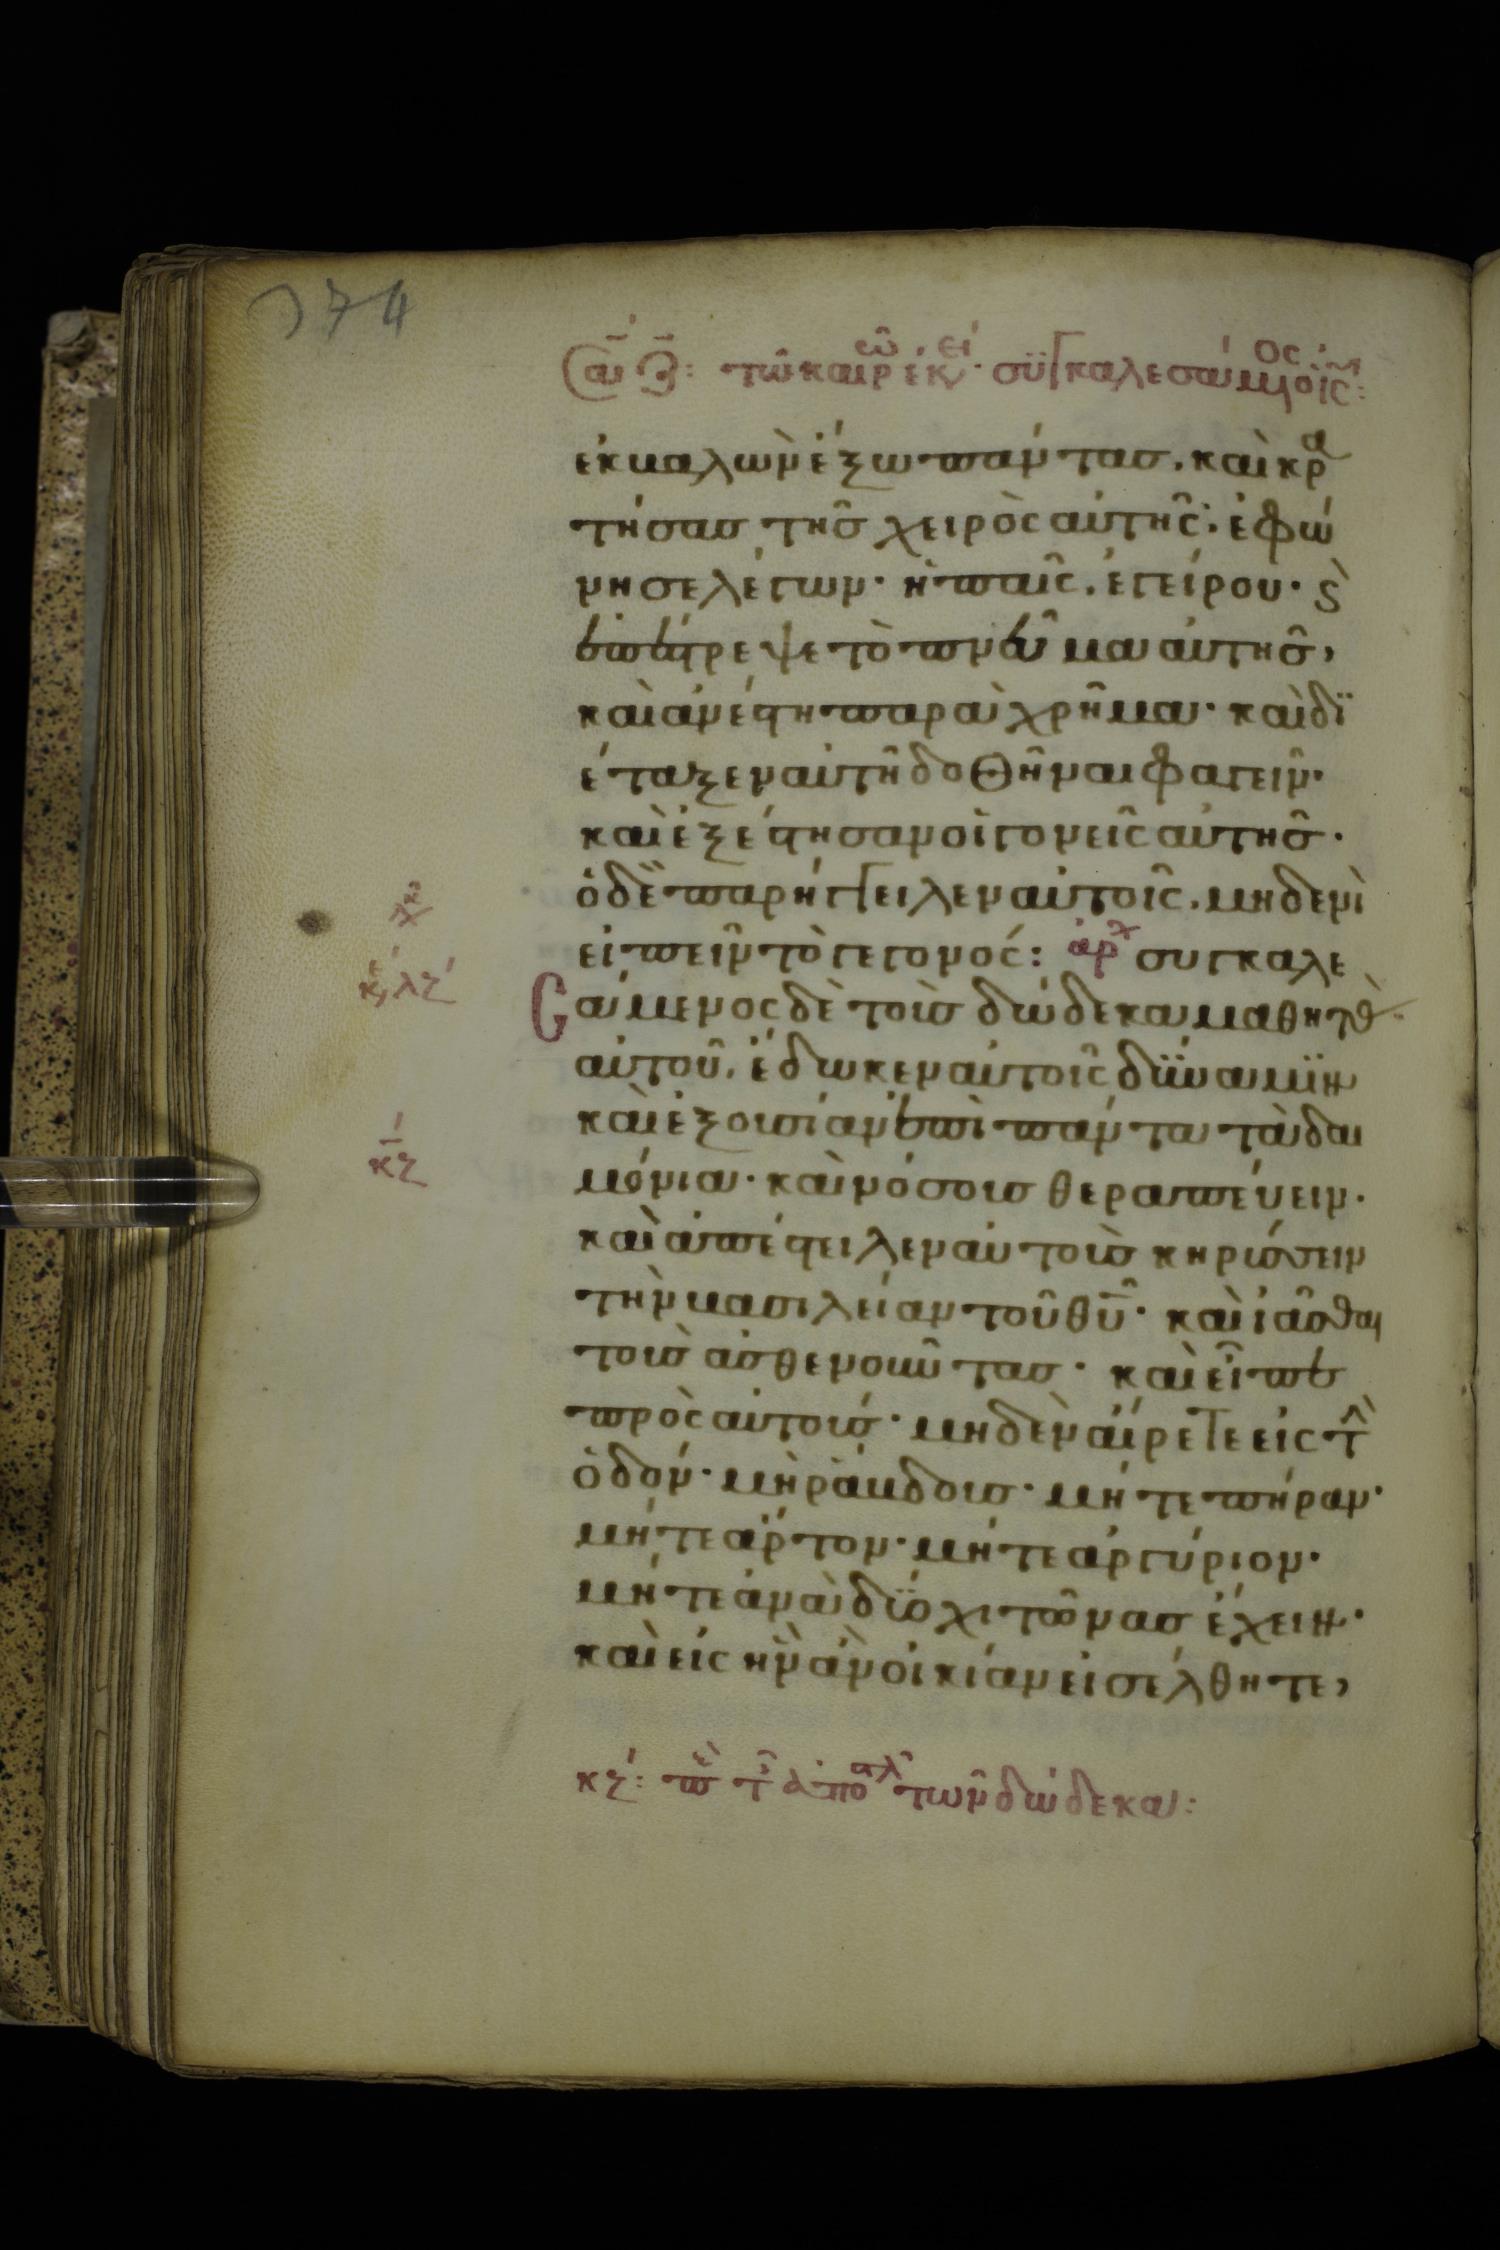 374
Σα Ζ: τῶ καιρῶ ἐκεί· συγκαλεσάμενος ὁ ις:
ἐκβαλὼν ἔξω πάντας. καὶ κρα
τήσας τῆς χειρὸς αὐτῆς· ἐφώ
νησε λέγων· ἡ παῖς. ἐγείρου· ϗ
ἐπέστρεψε τὸ πνεῦμα αὐτῆς,
καὶ ἀνέστη παραχρῆμα· καὶ δϊ
έταξεν αὐτῆ δοθῆναι φαγεῖν·
καὶ ἐξέστησαν οἱ γονεῖς αὐτῆς·
ὁ δὲ παρήγγειλεν αὐτοῖς. μηδενὶ
εἰπεῖν τὸ γεγονός: ἀρχ συγκαλε
σάμενος δὲ τοὺς δώδεκα μαθητὰς
αὐτοῦ. ἔδωκεν αὐτοῖς δύναμϊν
καὶ ἐξουσίαν ἐπὶ πάντα τὰ δαι
μόνια· καὶ νόσους θεραπεύειν·
καὶ ἀπέστειλεν αὐτοὺς κηρύσσειν
τὴν βασιλείαν τοῦ θυ· καὶ ἰᾶσθαι
τοὺς ἀσθενοῦντας· καὶ εἶπε
πρὸς αὐτούς· μηδὲν αἴρετε εἰς τὴν
ὁδόν· μὴ ῥάβδους· μήτε πήραν·
μήτε ἄρτον· μήτε ἀργύριον·
μήτε ἀνὰ δϋο χιτῶνας ἔχειν·
καὶ εἰς ἣν ἂν οἰκίαν εἰσέλθητε,
κζ
κζ: πε τ ἀποστλ τῶν δώδεκα: